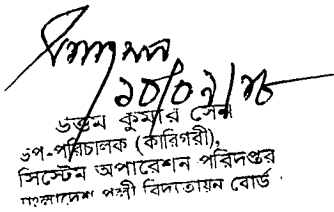 ১০/০৭/১৮
উত্তম কুমার সেন
উপ-পরিচালক (কারিগরী),
সিস্টেম অপারেশন পরিদপ্তর
বাংলাদেশ পল্লী বিদ্যুতায়ন বোর্ড